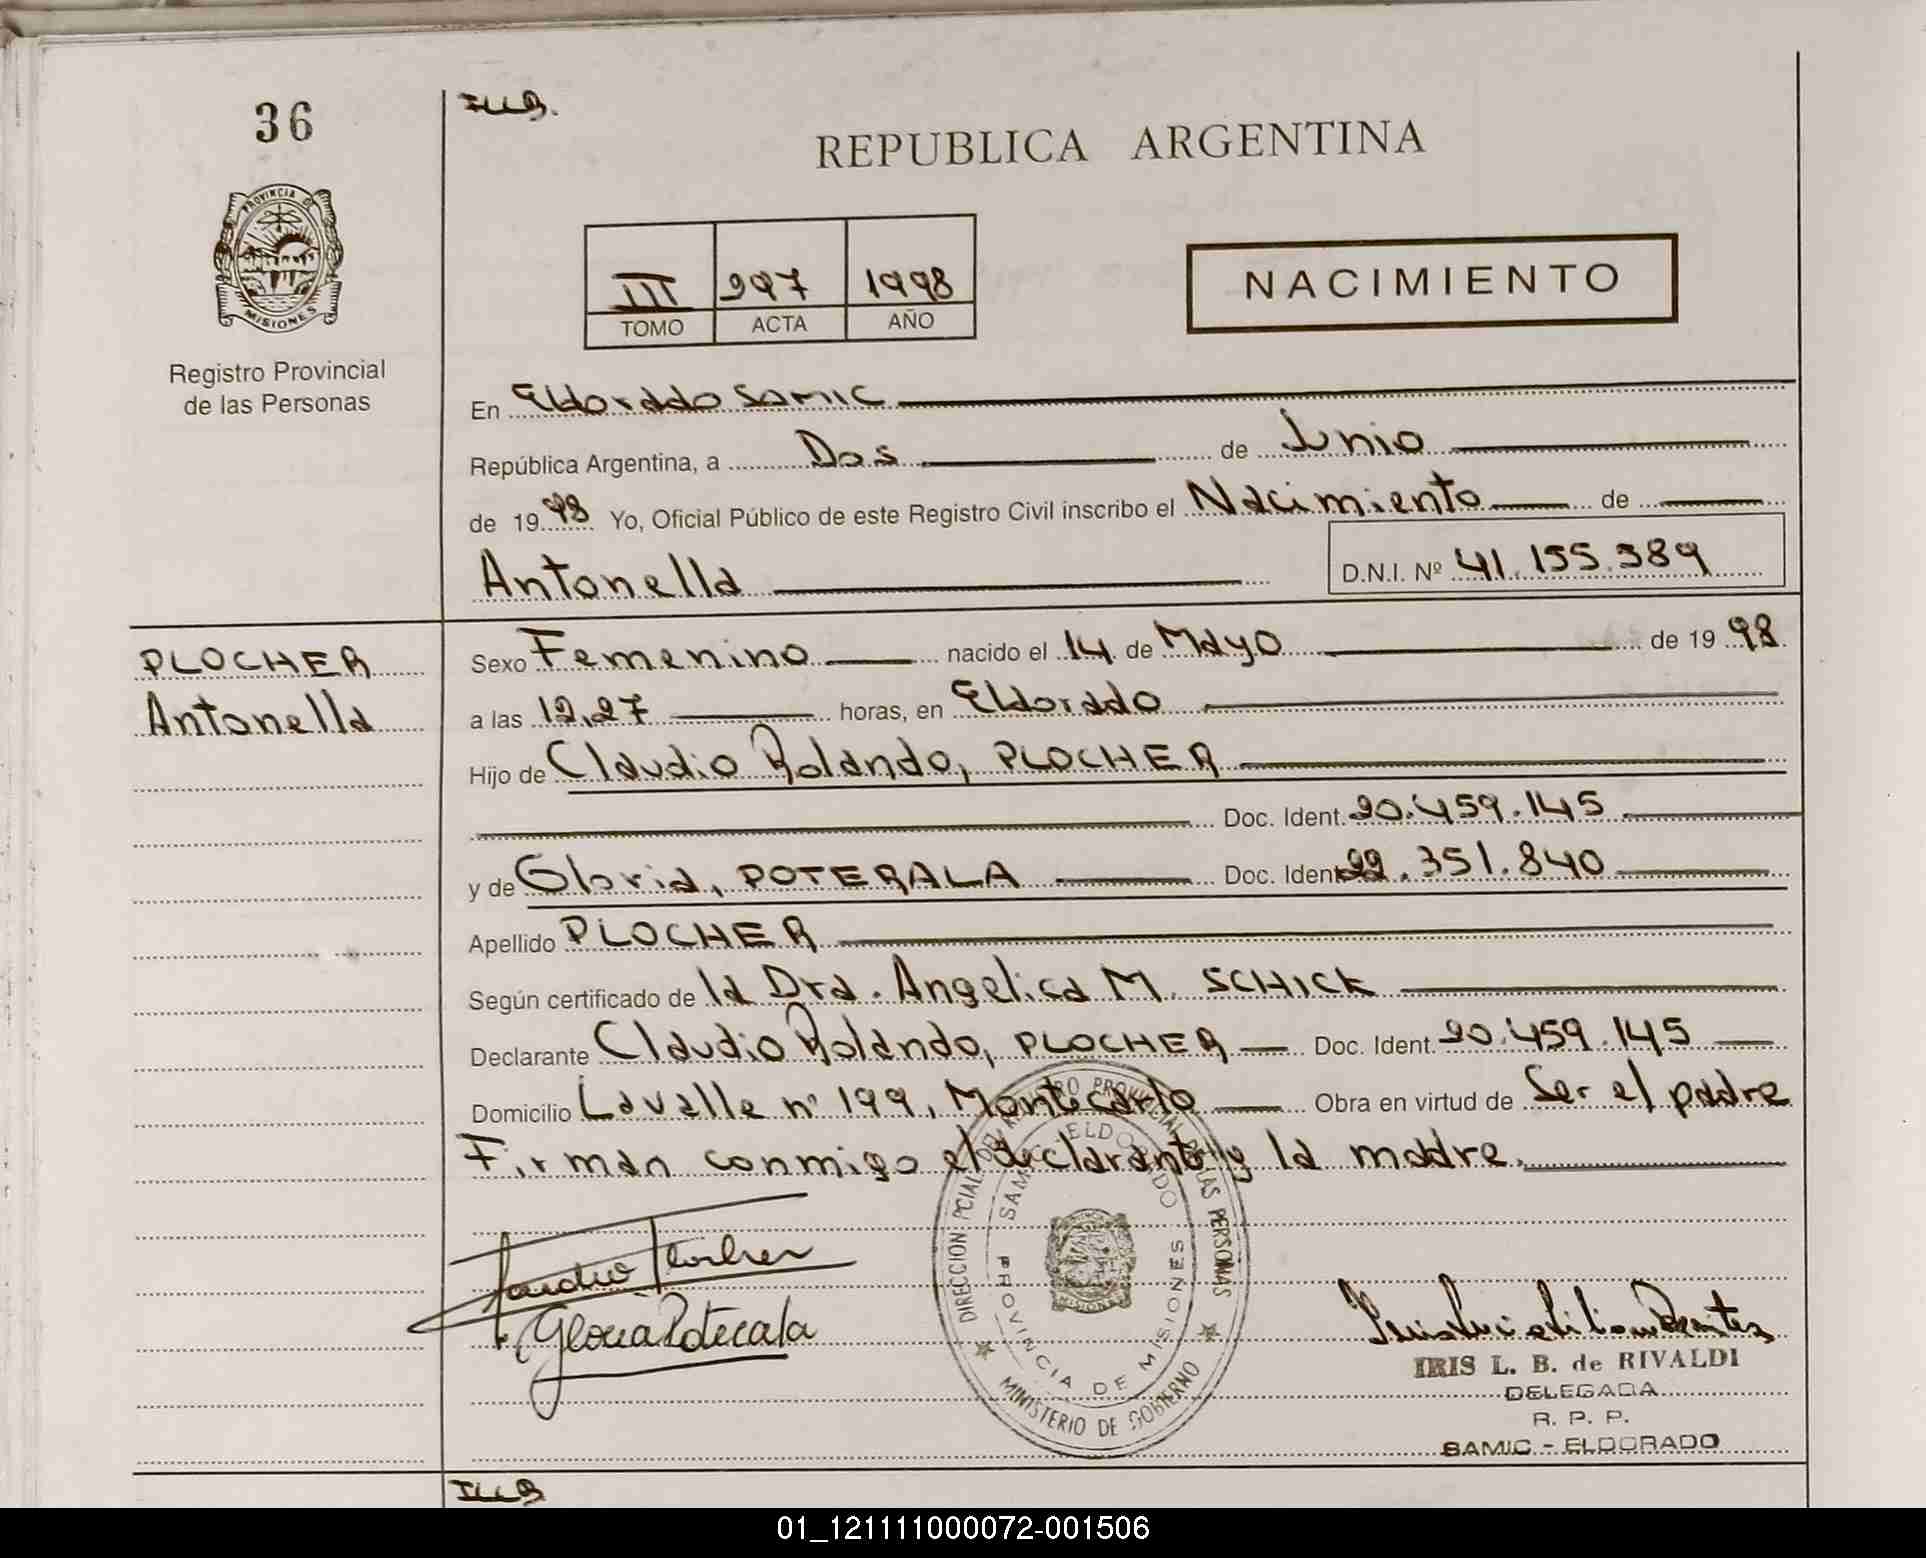 36
ILLB.
REPUBLICA ARGENTINA
PROVINCIA DE
MISIONES
III 297 1998
TOMO ACTA AÑO
NACIMIENTO
Registro Provincial
de las Personas
En Eldorado SAMIC
República Argentina, a Dos de Junio
de 1998 Yo, Oficial Público de este Registro Civil inscribo el Nacimiento de
Antonella D.N.I. Nº 41.155.389
PLOCHER
Antonella
Sexo Femenino nacido el 14 de Mayo de 1998
a las 12,27 horas, en Eldorado
Hijo de Claudio Rolando, PLOCHER
Doc. Ident. 20.459.145
y de Gloria, POTERALA Doc. Ident. 22.351.840
Apellido PLOCHER
Según certificado de la Dra. Angelica M. SCHICK
Declarante Claudio Rolando, PLOCHER Doc. Ident. 20.459.145
Domicilio Lavalle nº 199, Montecarlo Obra en virtud de Ser el padre
Firman conmigo el declarante y la madre.
DIRECCION PCIAL. DEL REGISTRO PROVINCIAL DE LAS PERSONAS
SAMIC - ELDORADO
PROVINCIA DE MISIONES
MINISTERIO DE GOBIERNO
Claudio Plocher
Gloria Poterala
IRIS L. B. de RIVALDI
DELEGADA
R. P. P.
SAMIC - ELDORADO
ILLB
01_121111000072-001506